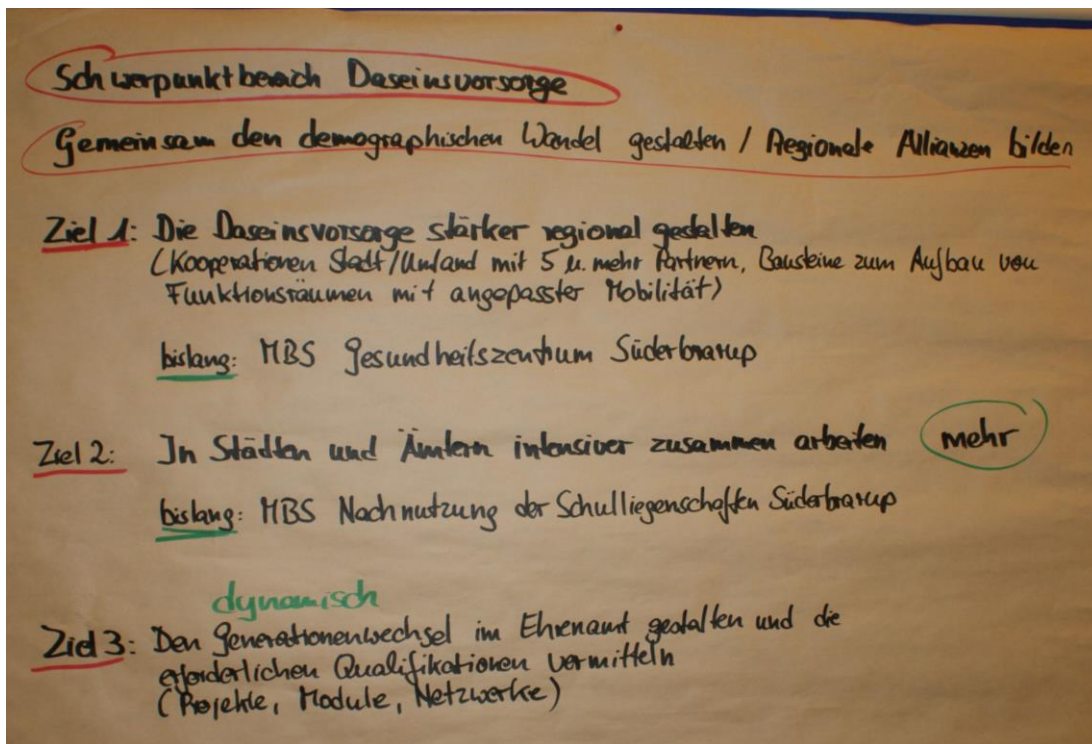 Schwerpunktbereich Daseinsvorsorge
Gemeinsam den demographischen Wandel gestalten / Regionale Allianzen bilden
Ziel 1: Die Daseinsvorsorge stärker regional gestalten
(Kooperationen Stadt/Umland mit 5 u. mehr Partnern, Bausteine zum Aufbau von
Funktionsräumen mit angepasster Mobilität)
bislang: MBS Gesundheitszentrum Süderbrarup
Ziel 2: In Städten und Ämtern intensiver zusammen arbeiten mehr
bislang: MBS Nachnutzung der Schulliegenschaften Süderbrarup
dynamisch
Ziel 3: Den Generationenwechsel im Ehrenamt gestalten und die
erforderlichen Qualifikationen vermitteln
(Projekte, Module, Netzwerke)